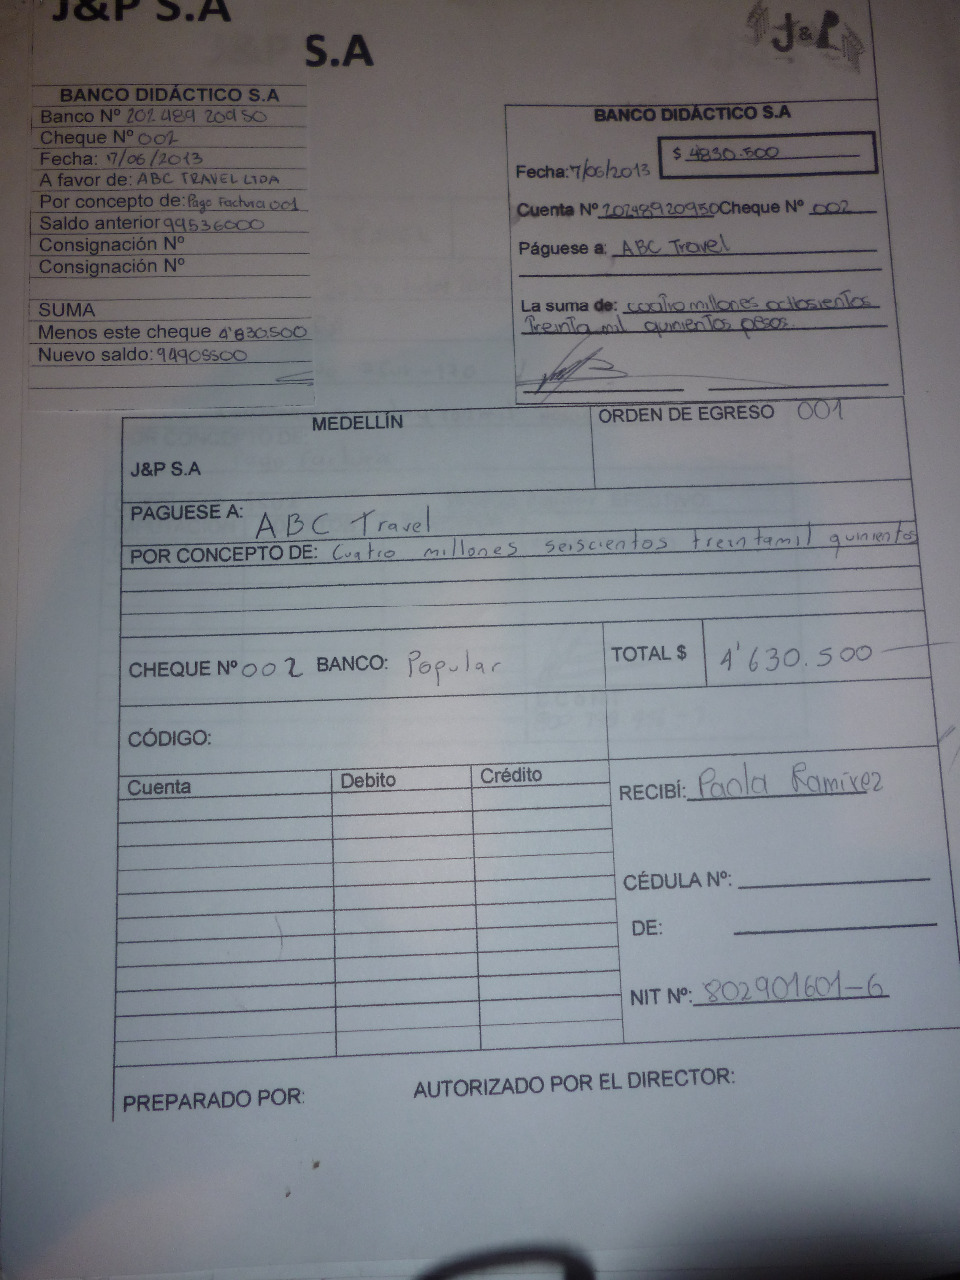 J&P S.A
S.A
J&P
BANCO DIDÁCTICO S.A
Banco Nº 202 489 20950
Cheque Nº 002
Fecha: 7/06/2013
A favor de: ABC TRAVEL LTDA
Por concepto de: Pago Factura 001
Saldo anterior 99536000
Consignación Nº
Consignación Nº
SUMA
Menos este cheque 4'830.500
Nuevo saldo: 94905500
BANCO DIDÁCTICO S.A
$ 4830.500
Fecha: 7/06/2013
Cuenta Nº 20248920950 Cheque Nº 002
Páguese a: ABC Travel
La suma de: cuatro millones ochosientos
Treinta mil quinientos pesos.
MEDELLÍN
ORDEN DE EGRESO 001
J&P S.A
PAGUESE A: ABC Travel
POR CONCEPTO DE: Cuatro millones seiscientos treintamil quinientos
CHEQUE Nº 002 BANCO: Popular
TOTAL $ 4'630.500
CÓDIGO:
Cuenta Debito Crédito
RECIBÍ: Paola Ramirez
CÉDULA Nº:
DE:
NIT Nº: 802901601-6
PREPARADO POR:
AUTORIZADO POR EL DIRECTOR: